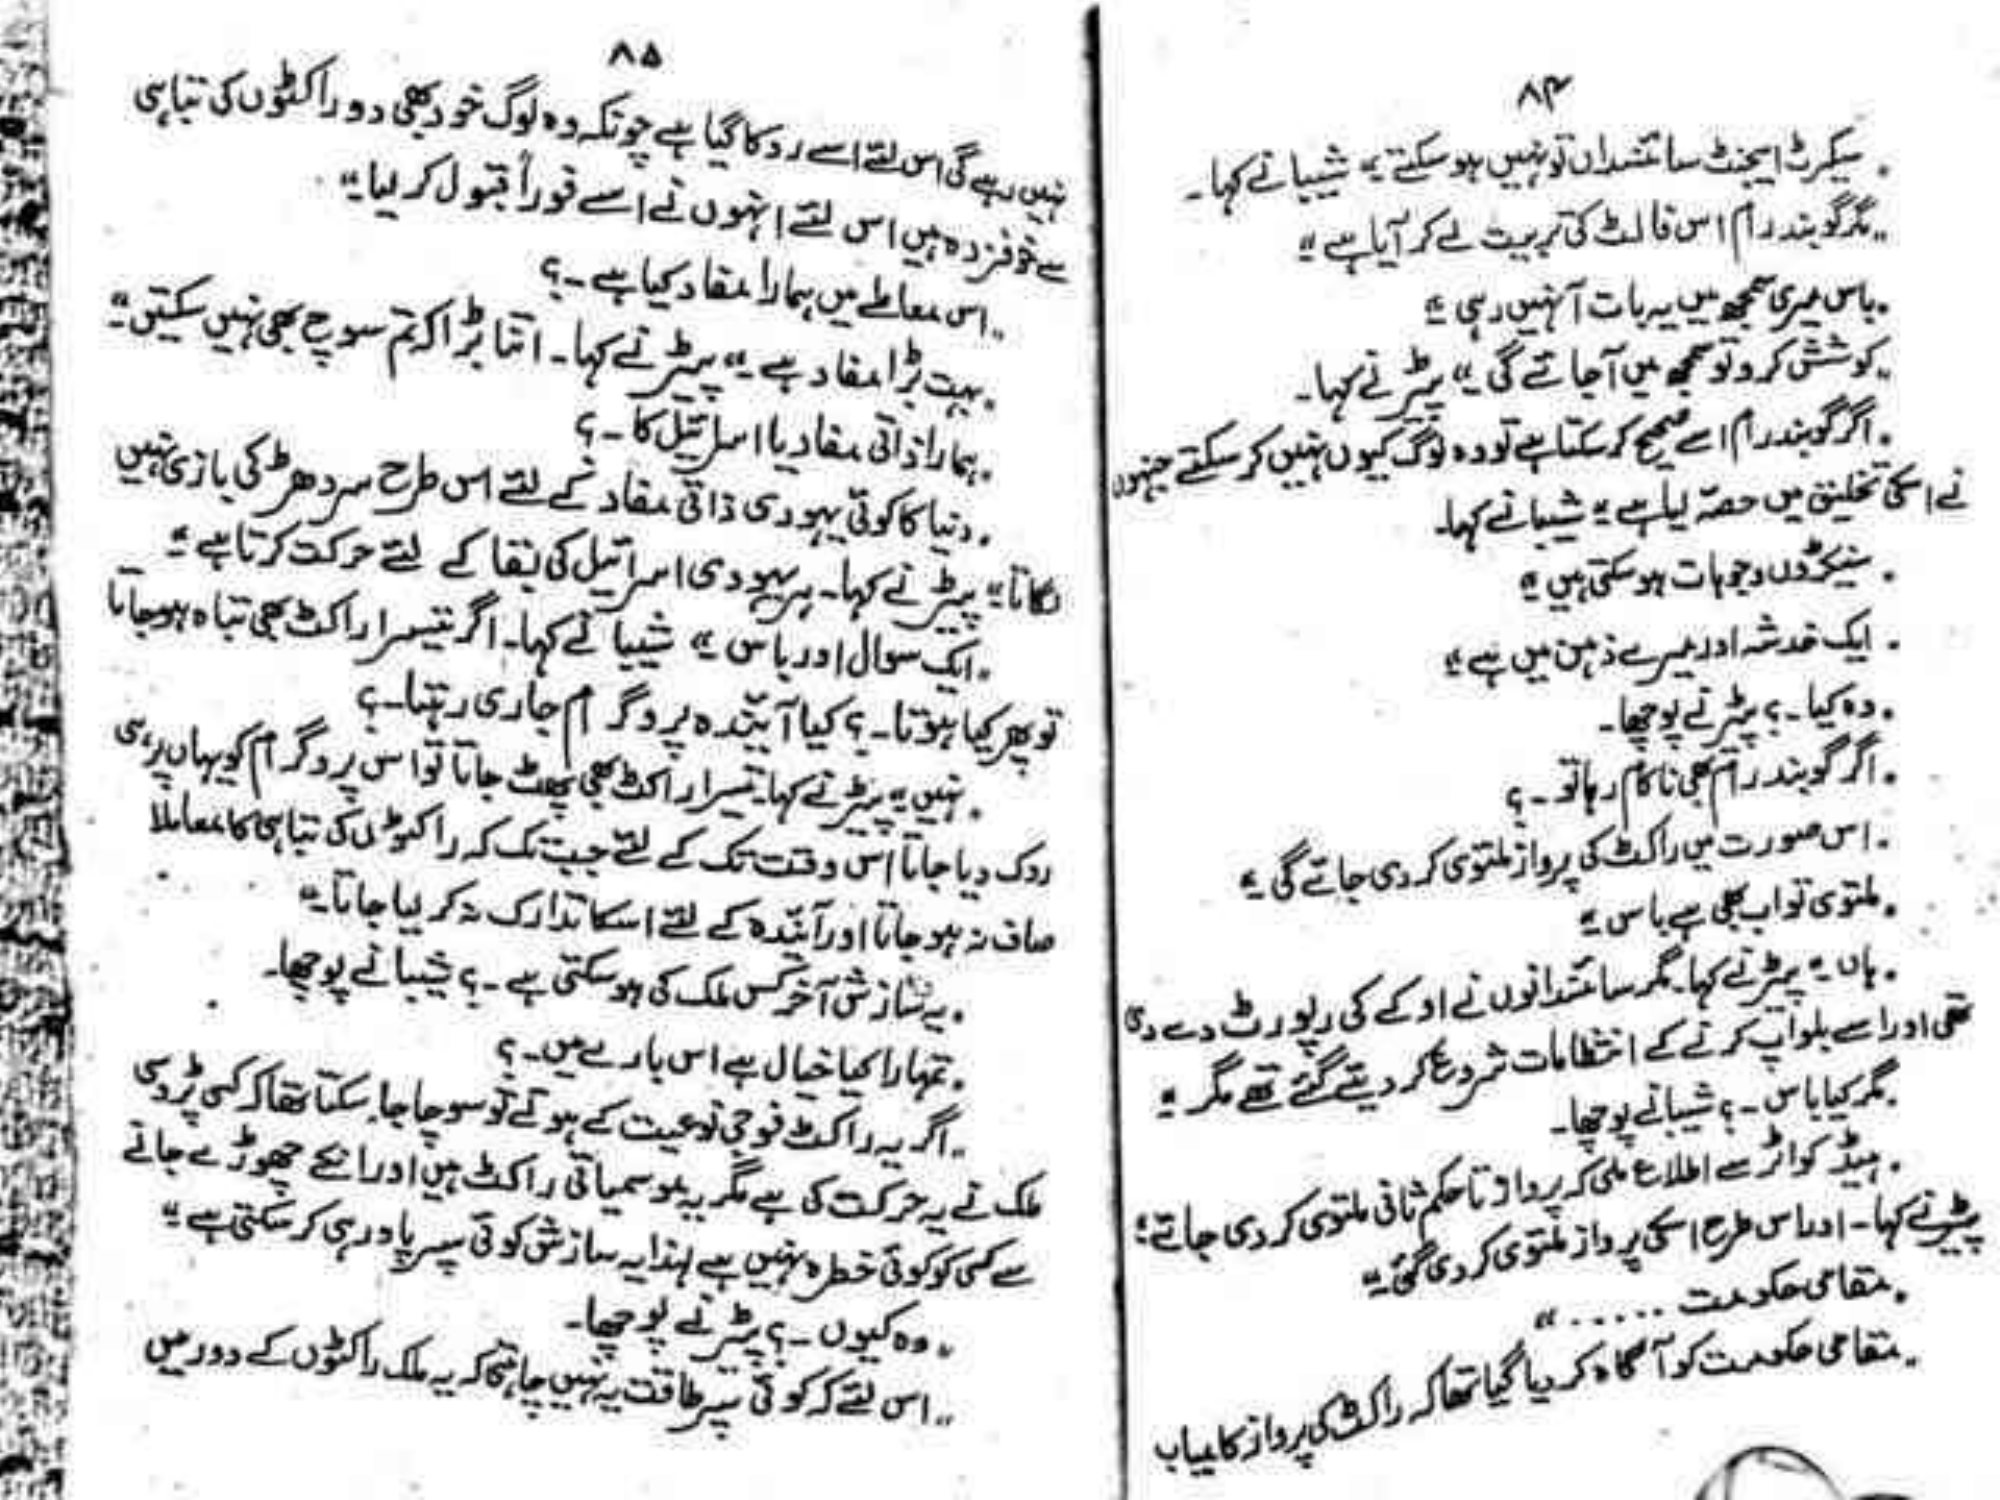 ۸۴
"سیکرٹ ایجنٹ سائنسداں تو نہیں ہو سکتے۔" شیبا نے کہا۔
"مگر گوبند رام اس فالٹ کی تربیت لے کر آیا ہے۔"
"باس میری سمجھ میں یہ بات آ نہیں رہی۔"
"کوشش کرو تو سمجھ میں آ جائے گی۔" پیٹر نے کہا۔
"اگر گوبند رام اسے صحیح کر سکتا ہے تو وہ لوگ کیوں نہیں کر سکتے جنہوں
نے اسکی تخلیق میں حصہ لیا ہے۔" شیبا نے کہا۔
"سینکڑوں وجوہات ہو سکتی ہیں۔"
"ایک خدشہ اور میرے ذہن میں ہے۔"
"وہ کیا۔؟ پیٹر نے پوچھا۔
"اگر گوبند رام بھی ناکام رہا تو۔؟
"اس صورت میں راکٹ کی پرواز ملتوی کر دی جائے گی۔"
"ملتوی تو اب بھی ہے باس۔"
"ہاں۔" پیٹر نے کہا۔ مگر سائنسدانوں نے او کے کی رپورٹ دے دی
تھی اور اسے بلو اپ کرنے کے انتظامات شروع کر دیئے گئے تھے مگر۔"
"مگر کیا باس۔؟ شیبا نے پوچھا۔
"ہیڈ کواٹر سے اطلاع ملی کہ پرواز تا حکم ثانی ملتوی کر دی جائے؛
پیٹر نے کہا۔ اور اس طرح اسکی پرواز ملتوی کر دی گئی۔"
"مقامی حکومت ......"
"مقامی حکومت کو آگاہ کر دیا گیا تھا کہ راکٹ کی پرواز کامیاب
۸۵
نہیں رہے گی اس لئے اسے روکا گیا ہے چونکہ وہ لوگ خود بھی دو راکٹوں کی تباہی
سے خوفزدہ ہیں اس لئے انہوں نے اسے فوراً قبول کر لیا۔"
"اس معاملے میں ہمارا مفاد کیا ہے۔؟
"بہت بڑا مفاد ہے۔" پیٹر نے کہا۔ اتنا بڑا کہ تم سوچ بھی نہیں سکتیں۔"
"ہمارا ذاتی مفاد یا اسرائیل کا۔؟
"دنیا کا کوئی یہودی ذاتی مفاد کے لئے اس طرح سر دھڑ کی بازی نہیں
لگاتا۔" پیٹر نے کہا۔ ہر یہودی اسرائیل کی بقا کے لئے حرکت کرتا ہے۔"
"ایک سوال اور باس۔" شیبا نے کہا۔ اگر تیسرا راکٹ بھی تباہ ہو جاتا
تو پھر کیا ہوتا۔؟ کیا آئیندہ پروگرام جاری رہتا۔؟
"نہیں۔" پیٹر نے کہا۔ تیسرا راکٹ بھی پھٹ جاتا تو اس پروگرام کو یہاں پر ہی
روک دیا جاتا اس وقت تک کے لئے جب تک کہ راکٹوں کی تباہی کا معاملا
صاف نہ ہو جاتا اور آئندہ کے لئے اسکا تدارک نہ کر لیا جاتا۔"
"یہ سازش آخر کس ملک کی ہو سکتی ہے۔؟ شیبا نے پوچھا۔
"تمہارا کیا خیال ہے اس بارے میں۔؟
"اگر یہ راکٹ فوجی نوعیت کے ہوتے تو سوچا جا سکتا تھا کہ کسی پڑوسی
ملک نے یہ حرکت کی ہے مگر یہ موسمیاتی راکٹ ہیں اور انکے چھوڑے جانے
سے کسی کو کوئی خطرہ نہیں ہے لہذا یہ سازش کوئی سپر پاور ہی کر سکتی ہے۔"
"وہ کیوں۔؟ پیٹر نے پوچھا۔
"اس لئے کہ کوئی سپر طاقت یہ نہیں چاہتی کہ یہ ملک راکٹوں کے دور میں